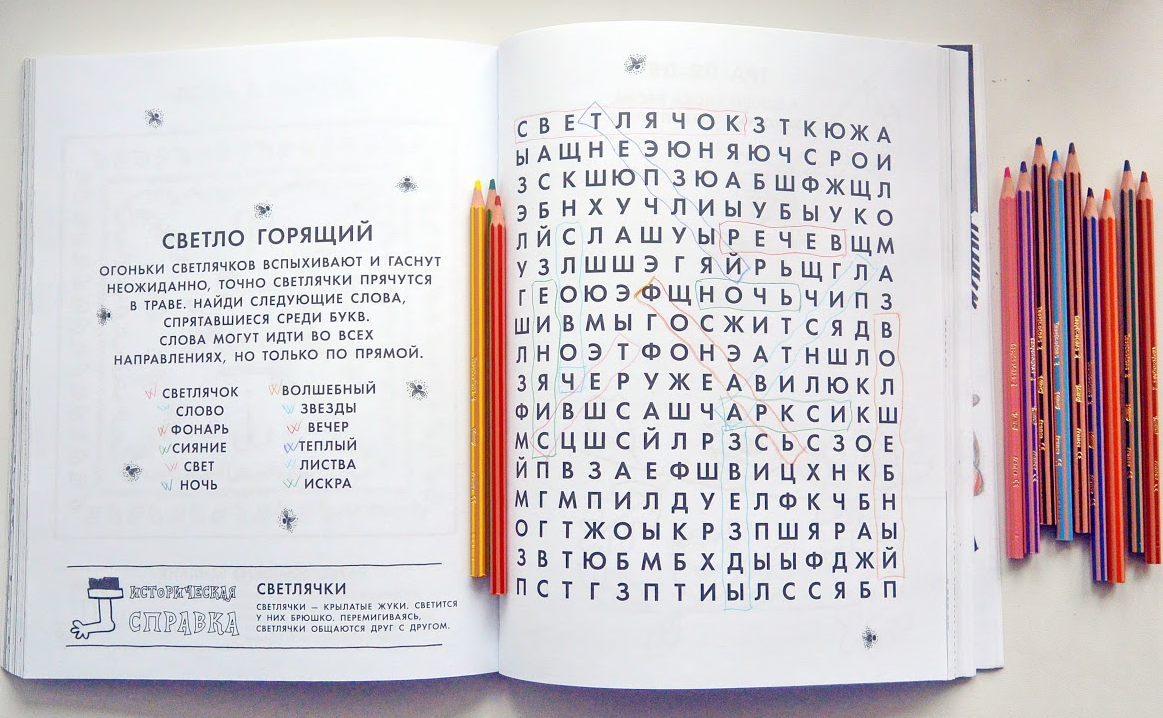 СВЕТЛО ГОРЯЩИЙ
ОГОНЬКИ СВЕТЛЯЧКОВ ВСПЫХИВАЮТ И ГАСНУТ
НЕОЖИДАННО, ТОЧНО СВЕТЛЯЧКИ ПРЯЧУТСЯ
В ТРАВЕ. НАЙДИ СЛЕДУЮЩИЕ СЛОВА,
СПРЯТАВШИЕСЯ СРЕДИ БУКВ.
СЛОВА МОГУТ ИДТИ ВО ВСЕХ
НАПРАВЛЕНИЯХ, НО ТОЛЬКО ПО ПРЯМОЙ.
СВЕТЛЯЧОК
СЛОВО
ФОНАРЬ
СИЯНИЕ
СВЕТ
НОЧЬ
ВОЛШЕБНЫЙ
ЗВЕЗДЫ
ВЕЧЕР
ТЕПЛЫЙ
ЛИСТВА
ИСКРА
ИСТОРИЧЕСКАЯ
СПРАВКА
СВЕТЛЯЧКИ
СВЕТЛЯЧКИ — КРЫЛАТЫЕ ЖУКИ. СВЕТИТСЯ
У НИХ БРЮШКО. ПЕРЕМИГИВАЯСЬ,
СВЕТЛЯЧКИ ОБЩАЮТСЯ ДРУГ С ДРУГОМ.
С В Е Т Л Я Ч О К З Т К Ю Ж А
Ы А Щ Н Е Э Ю Н Я Ю Ч С Р О И
З С К Ш Ю П З Ю А Б Ш Ф Ж Щ Л
Э Б Н Х У Ч Л И Ы У Б Ы У К О
Л Й С Л А Ш У Ы Р Е Ч Е В Щ М
У З Л Ш Ш Э Г Я Й Р Ь Щ Г Л А
Г Е О Ю Э Ф Щ Н О Ч Ь Ч И П З
Ш И В М Ы Г О С Ж И Т С Я Д В
Л Н О Э Т Ф О Н Э А Т Н Ш Л О
З Я Ч Е Р У Ж Е А В И Л Ю К Л
Ф И В Ш С А Ш Ч А Р К С И К Ш
М С Ц Ш С Й Л Р З С Ь С З О Е
Й П В З А Е Ф Ш В И Ц Х Н К Б
М Г М П И Л Д У Е Л Ф К Ч Б Н
О Г Т Ж О Ы К Р З П Ш Я Р А Ы
З В Т Ю Б М Б Х Д Ы Ы Ф Д Ж Й
П С Т Г З П Т И Ы Л С С Я Б П